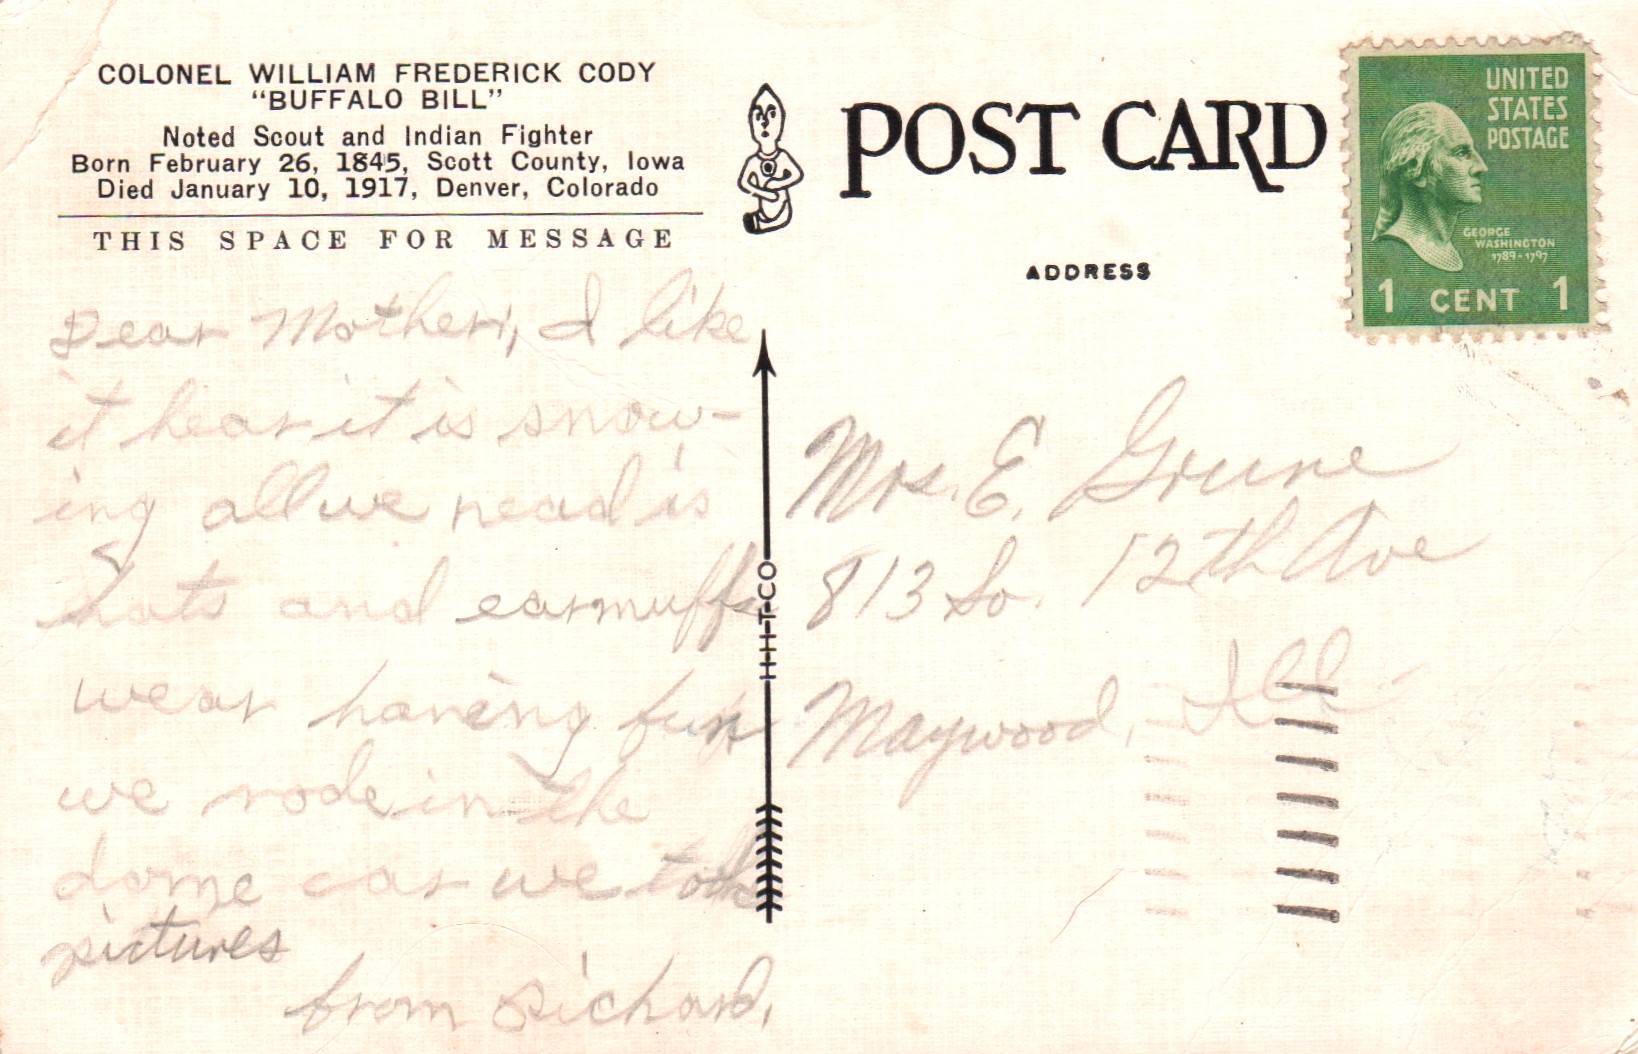 COLONEL WILLIAM FREDERICK CODY
"BUFFALO BILL"
Noted Scout and Indian Fighter
Born February 26, 1845, Scott County, Iowa
Died January 10, 1917, Denver, Colorado
THIS SPACE FOR MESSAGE
Dear Mother, I like
it hear it is snow-
ing all we nead is
hats and earmuffs
wear having fun
we rode in the
dome car we took
pictures
from Richard,
POST CARD
ADDRESS
UNITED
STATES
POSTAGE
GEORGE
WASHINGTON
1789-1797
1 CENT 1
H-H-T-CO
Mrs. E. Grune
813 So. 12th Ave
Maywood, Ill